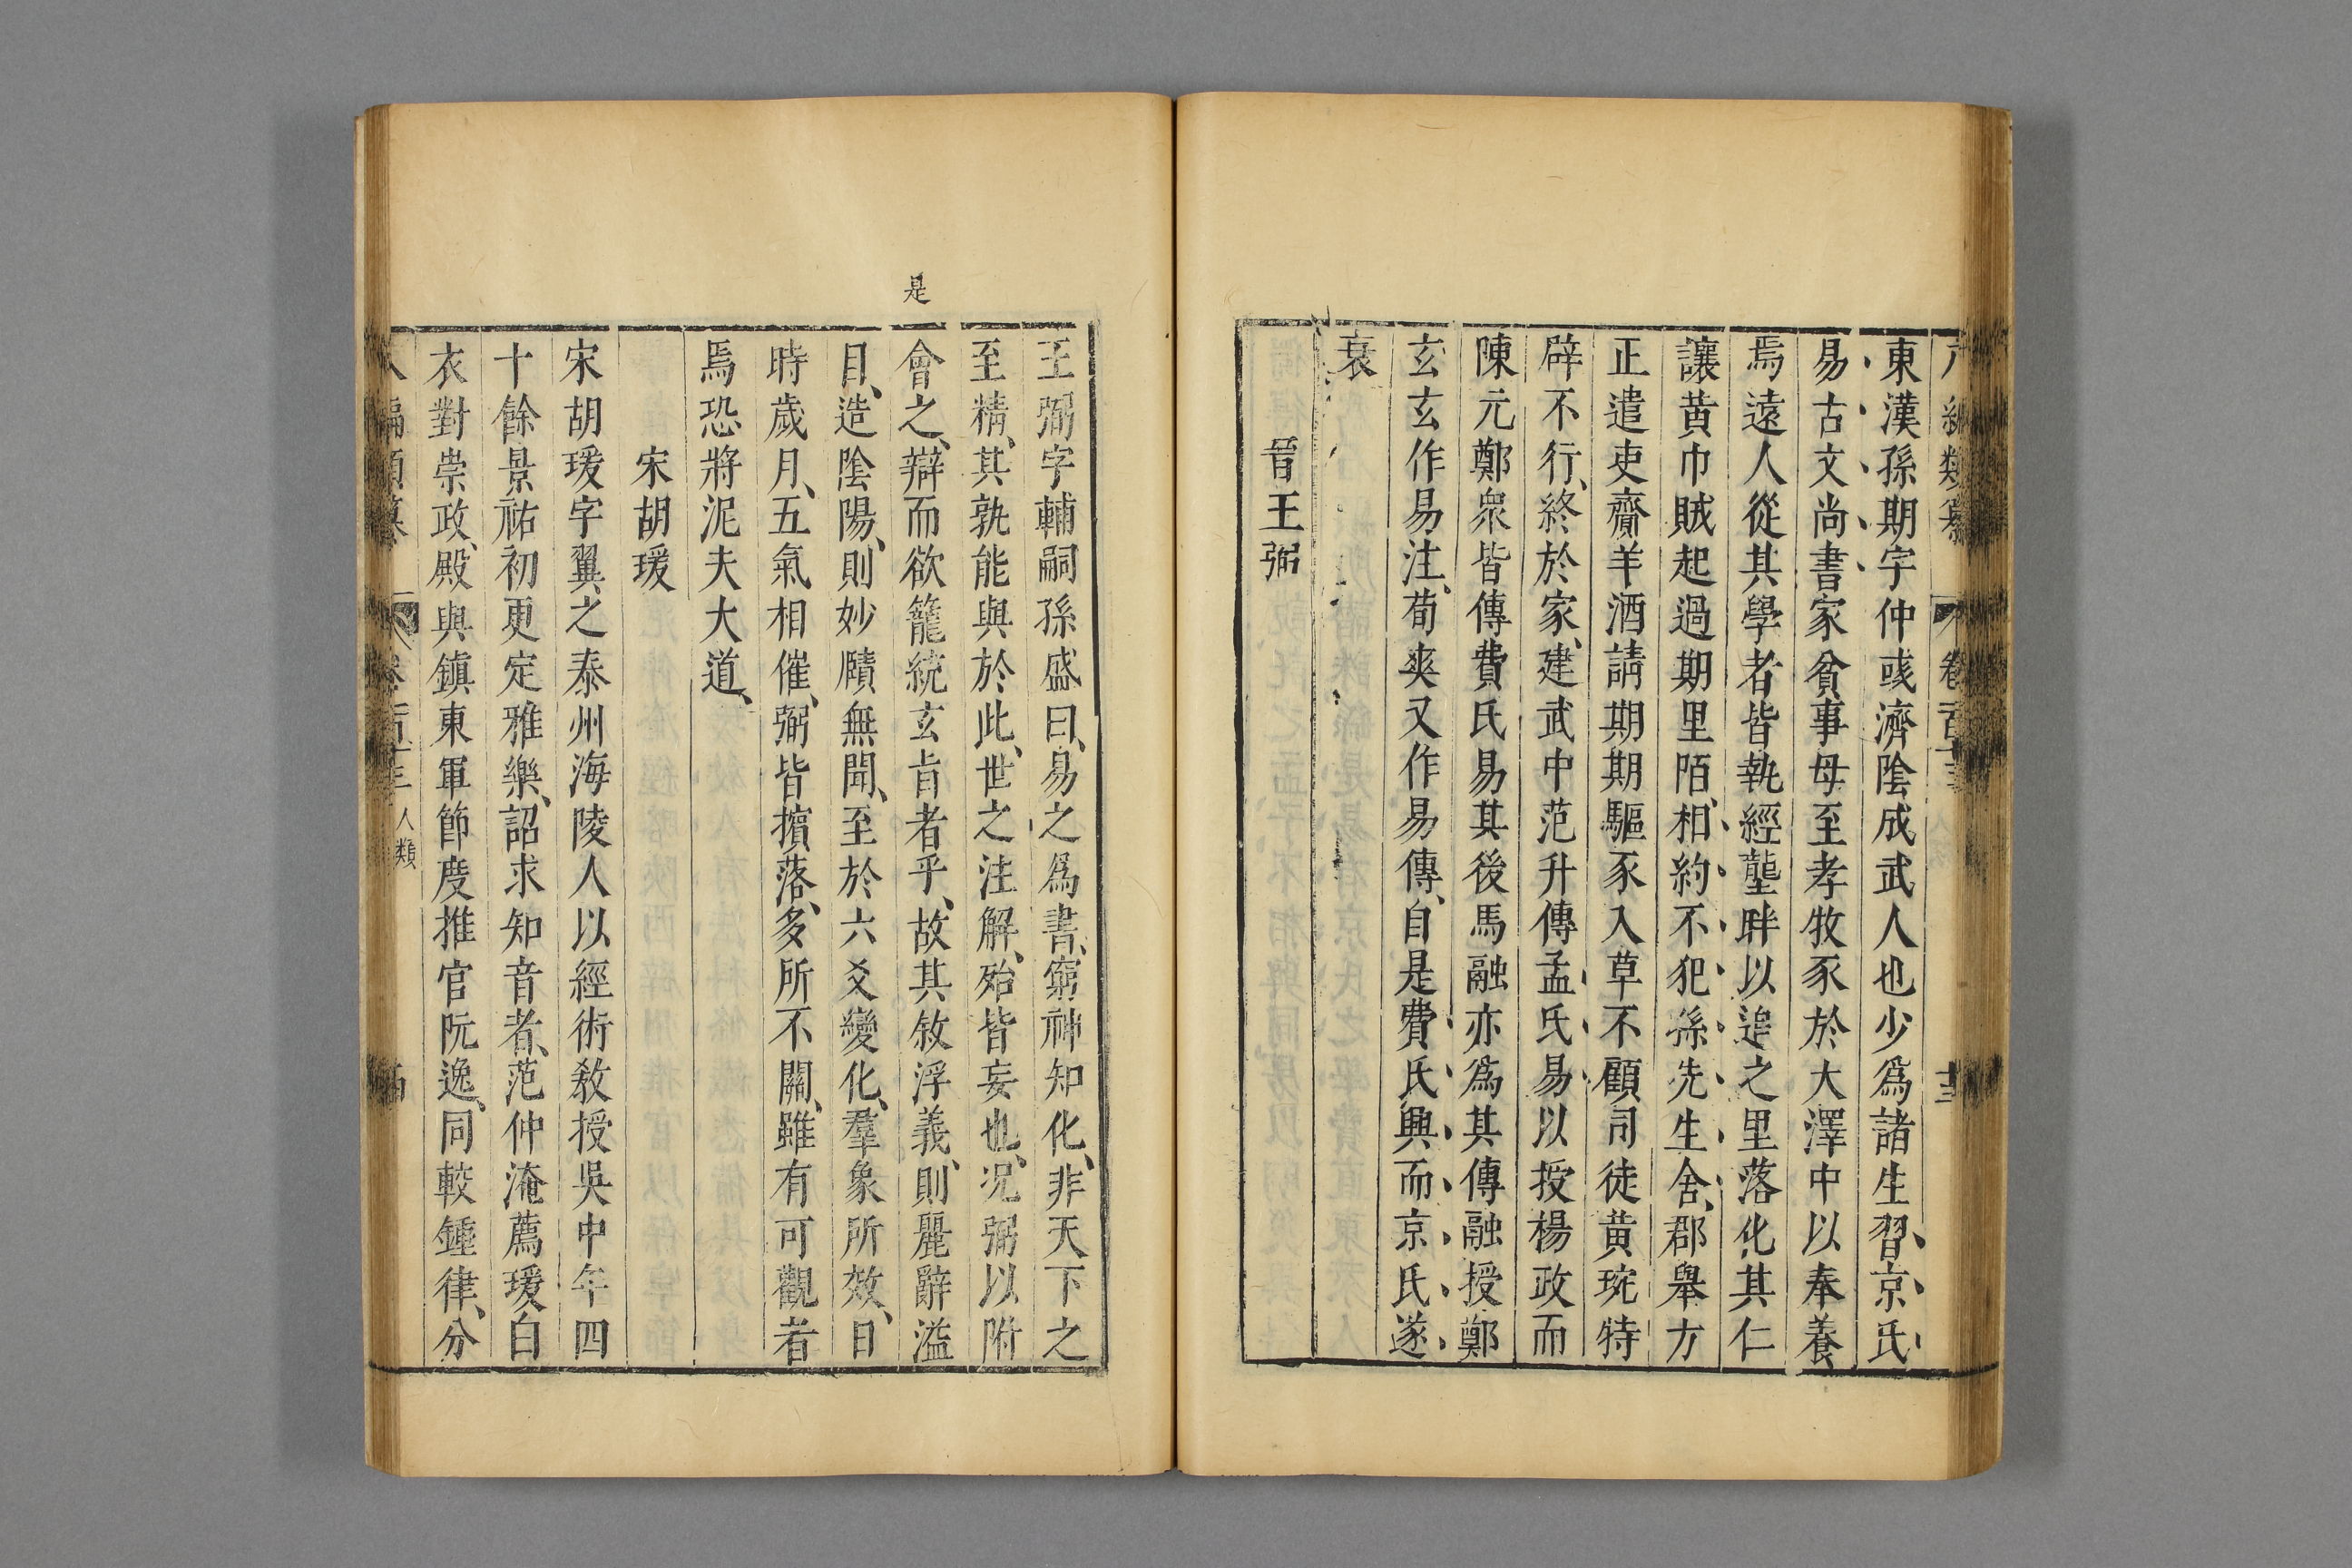 東漢孫期字仲彧濟陰成武人也少爲諸生習京氏
易古文尚書家貧事母至孝牧豕於大澤中以奉養
焉遠人從其學者皆執經壟畔以追之里落化其仁
讓黃巾賊起過期里陌相約不犯孫先生舍郡舉方
正遣吏齎羊酒請期期驅豕入草不顧司徒黃琬特
辟不行終於家建武中范升傳孟氏易以授楊政而
陳元鄭衆皆傳費氏易其後馬融亦爲其傳融授鄭
玄玄作易注荀爽又作易傳自是費氏興而京氏遂
衰
晉王弼
王弼字輔嗣孫盛曰易之爲書窮神知化非天下之
至精其孰能與於此世之注解殆皆妄也况弼以附
是
會之辯而欲籠統玄旨者乎故其敘浮義則麗辭溢
目造陰陽則妙賾無聞至於六爻變化羣象所效日
時歲月五氣相催弼皆擯落多所不關雖有可觀者
焉恐將泥夫大道
宋胡瑗
宋胡瑗字翼之泰州海陵人以經術教授吳中年四
十餘景祐初更定雅樂詔求知音者范仲淹薦瑗白
衣對崇政殿與鎮東軍節度推官阮逸同較鍾律分
人類